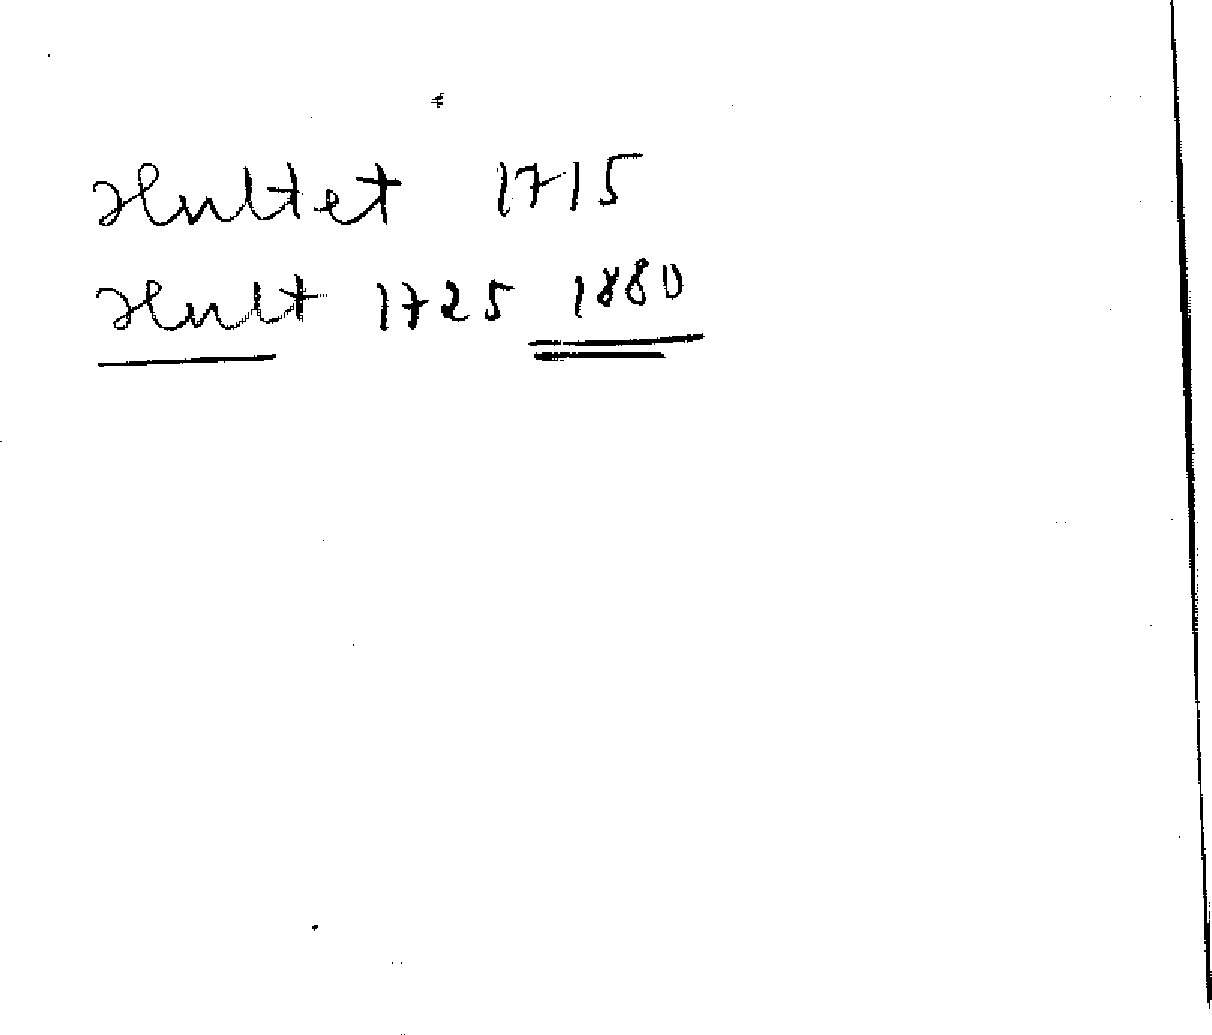 Hultet 1715
Hult 1725 1880